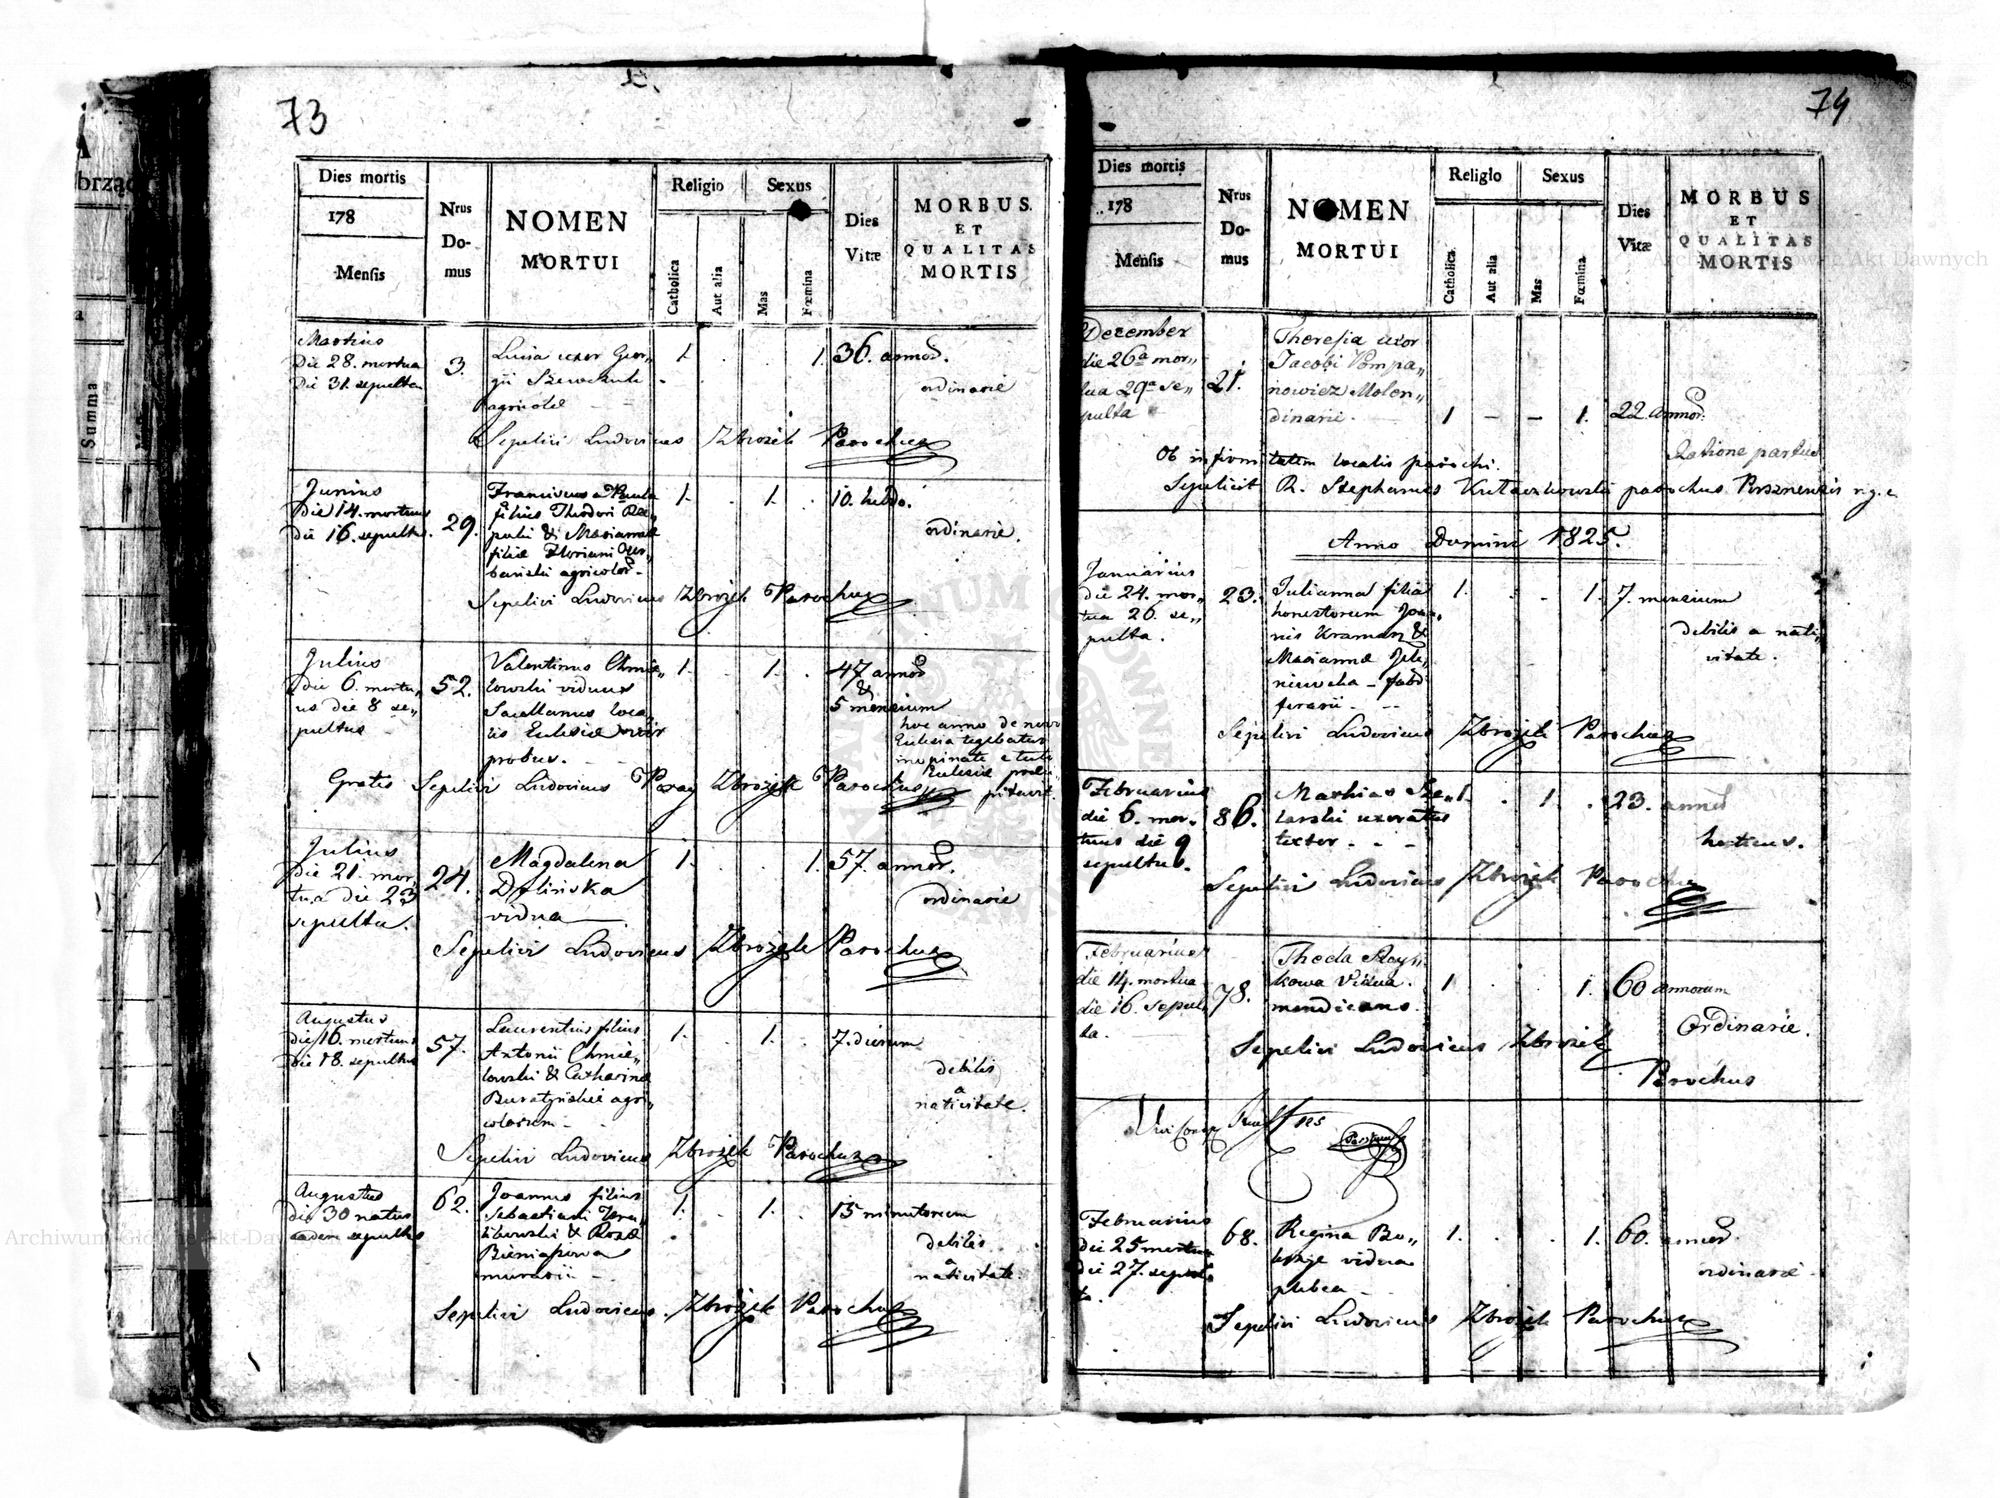 73
Dies mortis
178
Mensis
Nrus
Do-
mus
NOMEN
MORTUI
Religio
Catholica
Aut alia
Sexus
Mas
Fœmina
Dies
Vitæ
MORBUS
ET
QUALITAS
MORTIS
Martius
Die 28. mortua
Die 31. sepulta
3.
Luisa uxor Geor„
gii Szewczuk
agricolæ
1.
1.
36. annor.
ordinarie
Sepelivi Ludovicus Zbrożek Parochus
Junius
Die 14. mortuus
die 16. sepultus.
29.
Franciscus a Paula
filius Thodori
& Marianna
filia Floriani
agricolar.
1.
1.
10. hebdo.
ordinarie.
Sepelivi Ludovicus Zbrożek Parochus
Julius
die 6. mortu„
us die 8 se„
pultus
52.
Valentinus Chmie„
lowski viduus
loca„
lis Eclesiæ vir
probus.
1.
1.
47 annor
&
5 mensium
hoc anno de novo
Eclesia tegebatur
inopinate e tecto
Eclesiæ præci„
pitavit.
Gratis Sepelivi Ludovicus Zbrożek Parochus
Julius
die 21. mor„
tua die 23
sepulta.
24.
Magdalena
Dylińska
vidua
1.
1.
57. annor.
ordinarie
Sepelivi Ludovicus Zbrożek Parochus
Augustus
die 16. mortuus
die 18. sepultus
57.
Laurentius filius
Antonii Chmie„
lowski & Catharinæ
agri„
colarum
1.
1.
7. dierum
debilis
a
nativitate.
Sepelivi Ludovicus Zbrożek Parochus
Augustus
die 30 natus
eadem sepultus
62.
Joannes filius
Sebastiani
& Rosæ
murarii
1.
1.
15 minutorum
debilis
a
nativitate.
Sepelivi Ludovicus Zbrożek Parochus
74
Dies mortis
178
Mensis
Nrus
Do-
mus
NOMEN
MORTUI
Religio
Catholica
Aut alia
Sexus
Mas
Fœmina
Dies
Vitæ
MORBUS
ET
QUALITAS
MORTIS
December
die 26a mor„
tua 29a se„
pulta
21.
Theresia uxor
Jacobi Pompa„
nowicz Molen„
dinarii
1
1.
22. annor.
Ratione partus
Ob infirmitatem localis parochi.
Sepelivit R. Stephanus parochus
Anno Domini 1825.
Januarius
die 24. mor„
tua 26. se„
pulta.
23.
Julianna filia
honestorum Joan„
nis Kramarz &
Mariannæ
fabri
ferarii
1.
1.
7. mensium
debilis a nati„
vitate.
Sepelivi Ludovicus Zbrożek Parochus
Februarius
die 6. mor„
tuus die 9
sepultus.
86.
Mathias
uxoratus
textor
1.
1.
23. annor
hecticus.
Sepelivi Ludovicus Zbrożek Parochus
Februarius
die 14. mortua
die 16. sepul
ta.
78.
Thecla
vidua.
mendicans.
1
1.
60 annorum
Ordinarie.
Sepelivi Ludovicus Zbrożek
Parochus
Februarius
die 25 mortua
die 27. sepul
ta.
68.
Regina
vidua
plebea
1.
1.
60. annor.
ordinarie
Sepelivi Ludovicus Zbrożek Parochus
Summa
Archiwum Główne Akt Dawnych